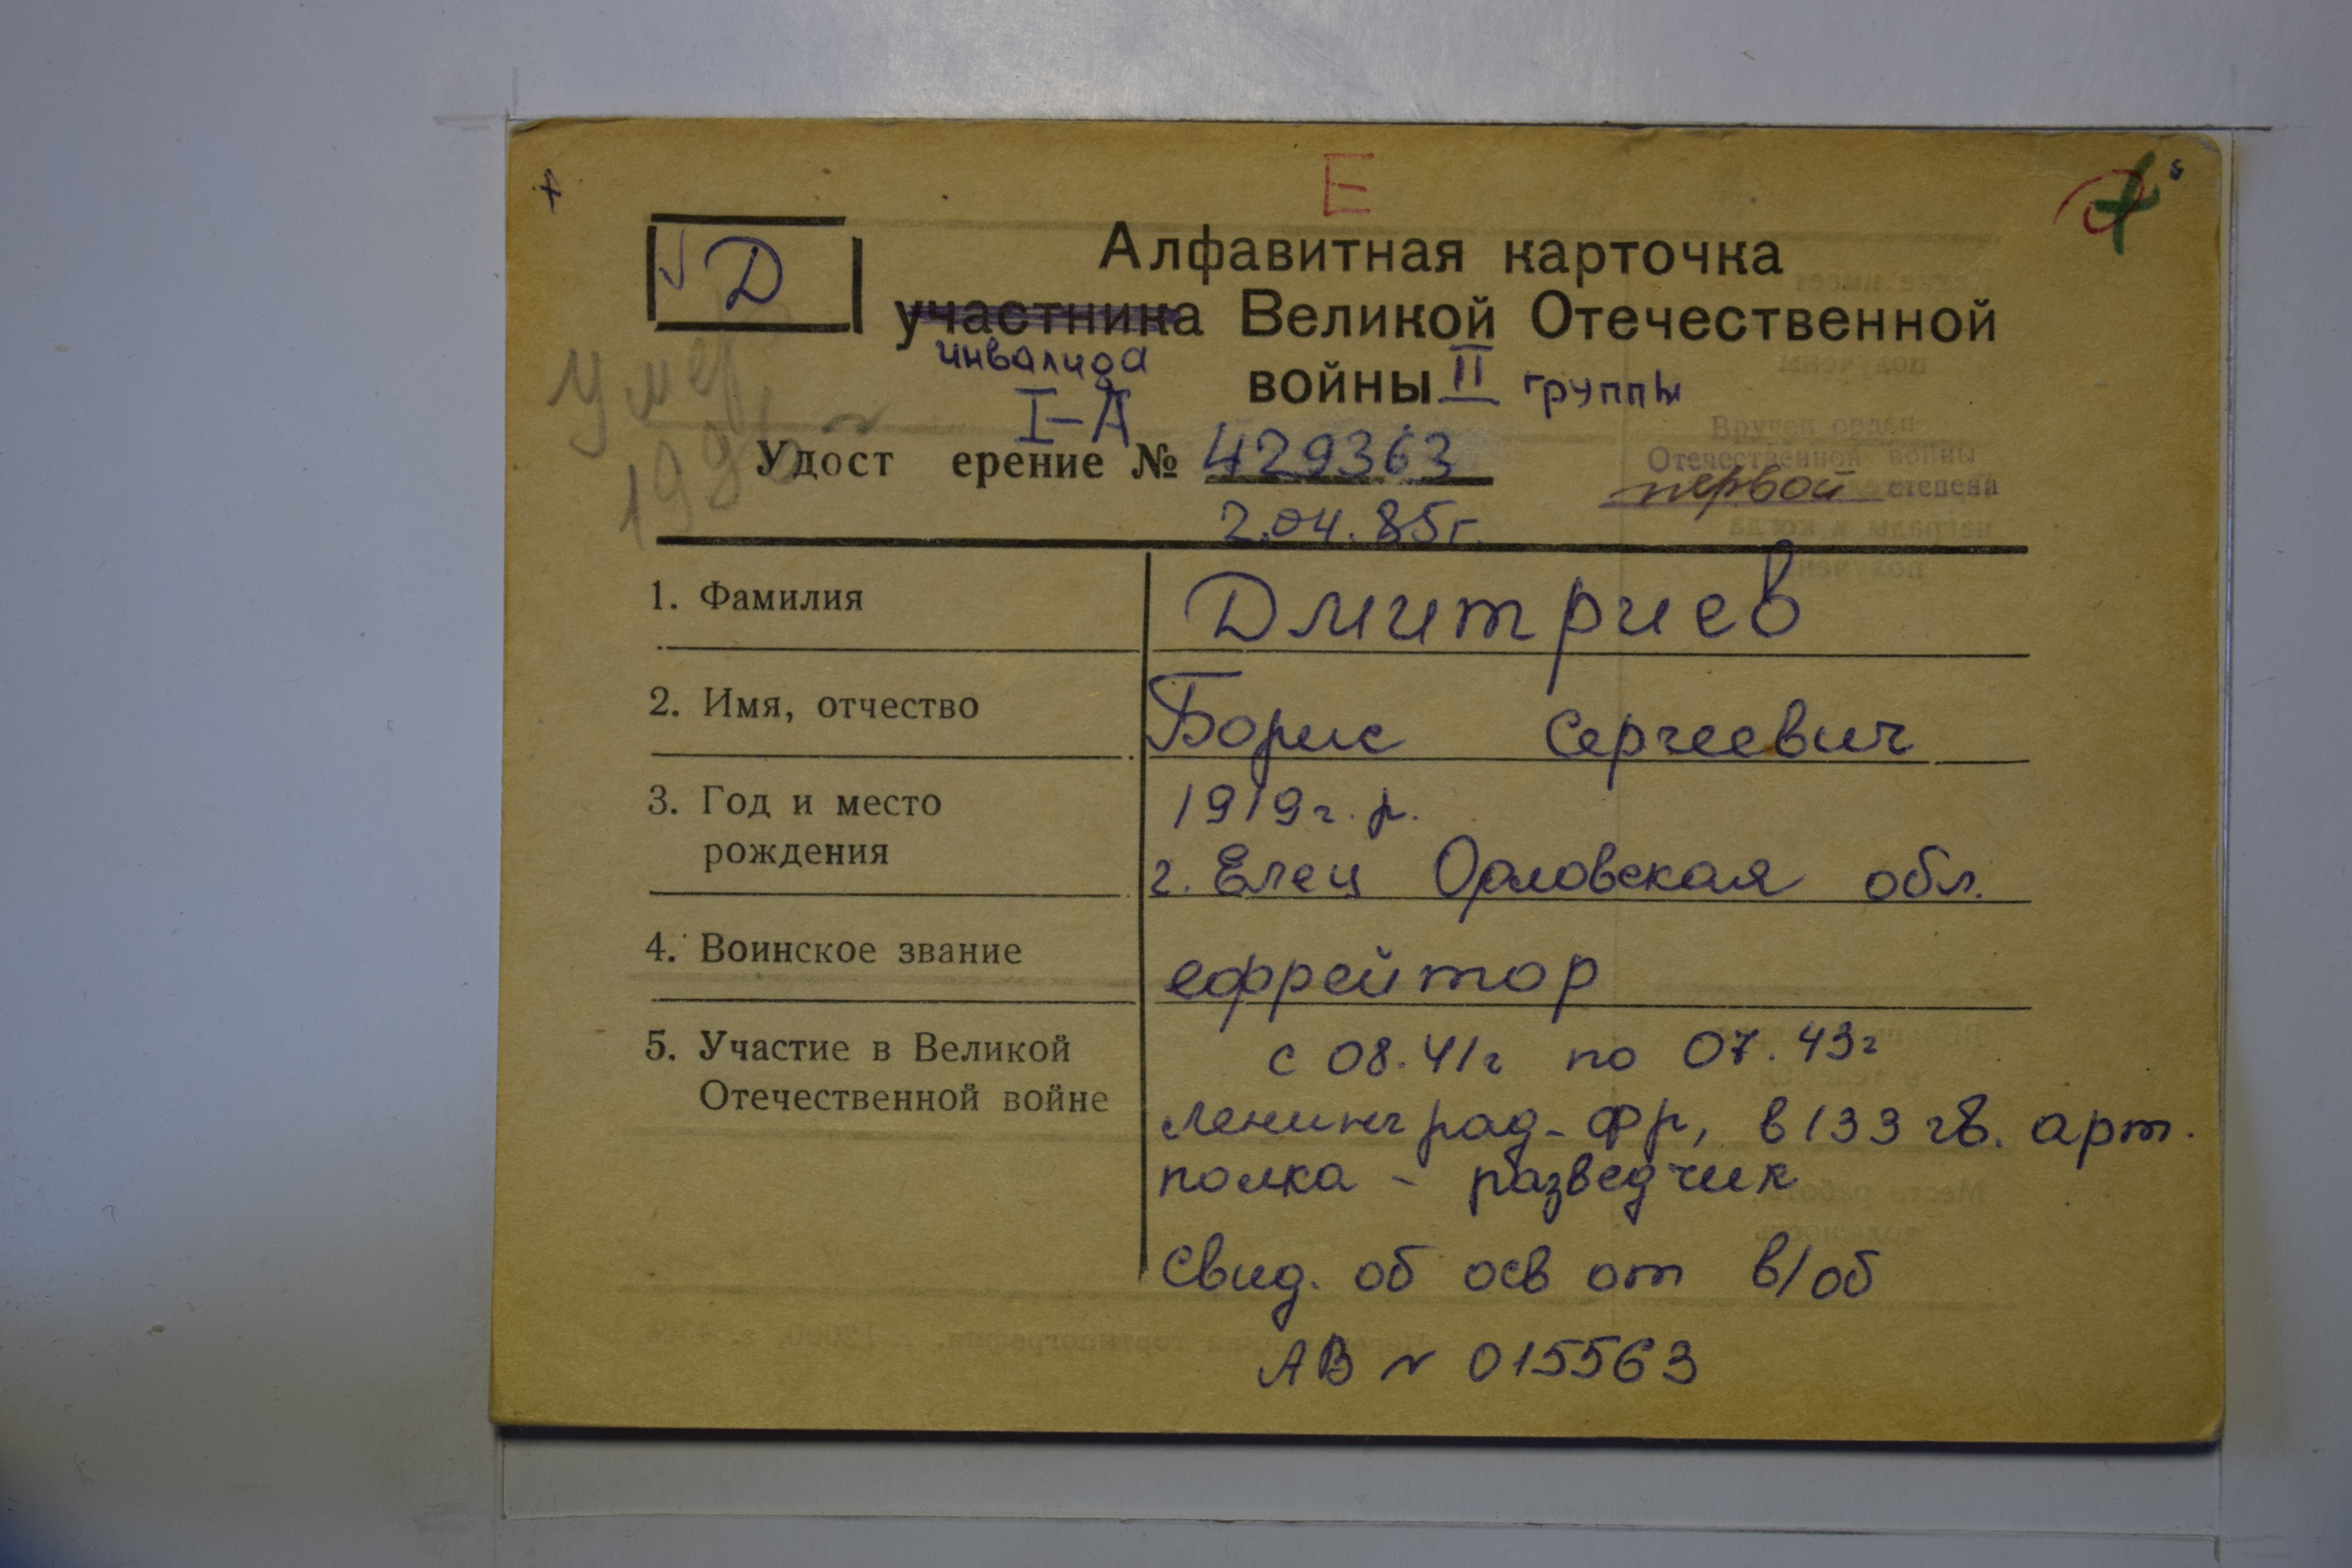 Е
Д
Алфавитная карточка
участника Великой Отечественной
инвалида
войны II группы
умер
I-А
Удост ерение № 429363
2.04.85г.
Вручен орден
Отечественной войны
первой степени
1. Фамилия Дмитриев
2. Имя, отчество Борис Сергеевич
3. Год и место 1919г. р.
рождения г. Елец Орловская обл.
4. Воинское звание ефрейтор
5. Участие в Великой с 08.41г по 07.43г
Отечественной войне Ленинград-фр, в 133 гв. арт.
полка - разведчик
Свид. об осв от в/об
АВ N 015563